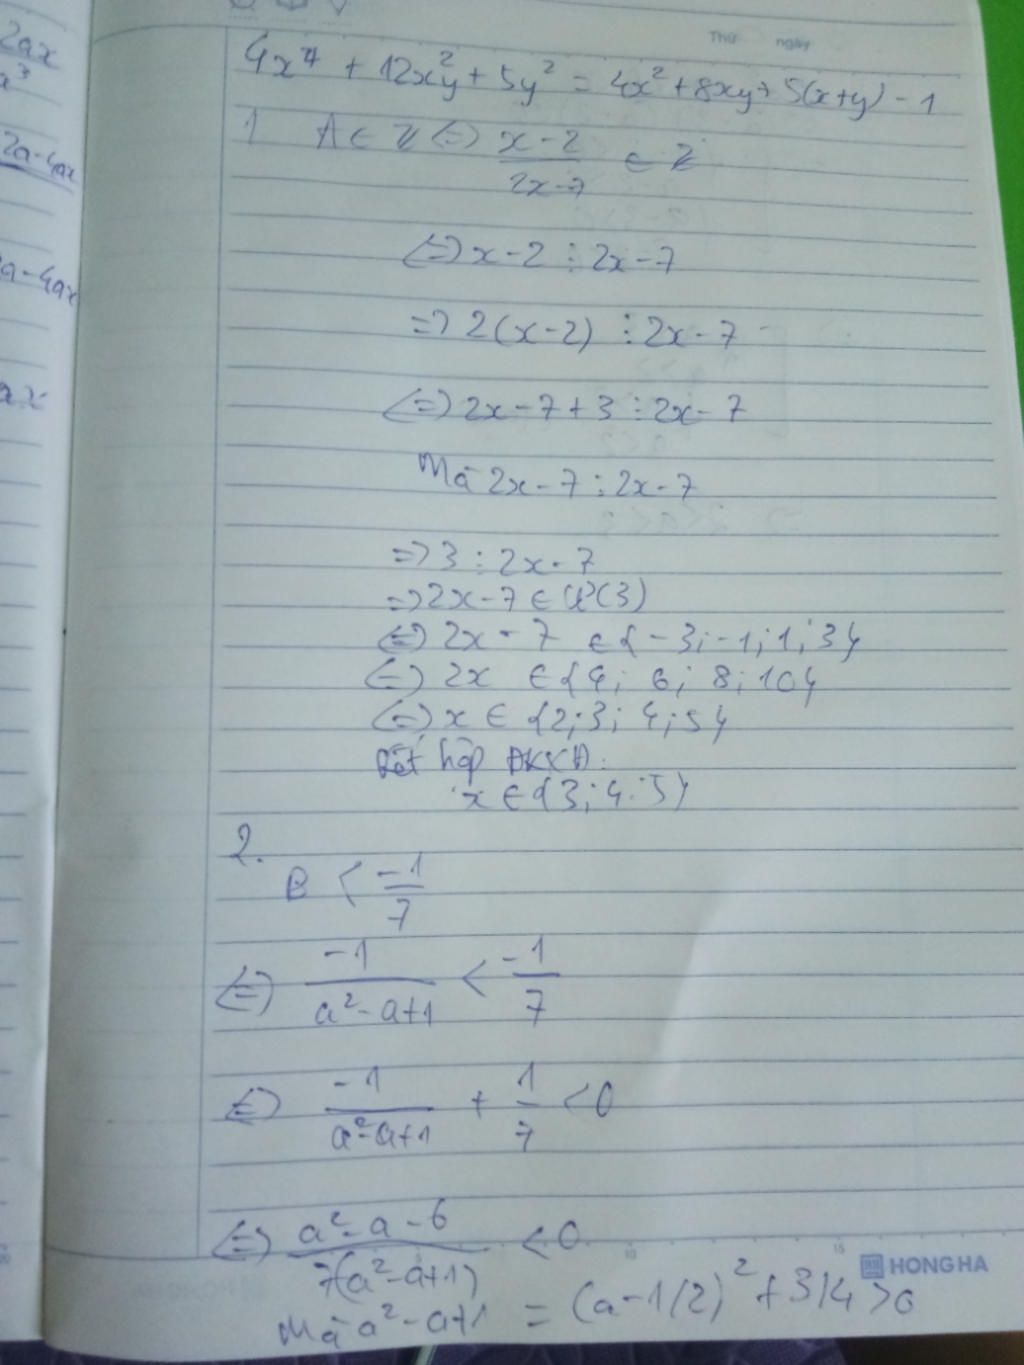 2ax
a³
2a-4ax
a-4ax
ax
Thứ ngày
4x⁴ + 12xy² + 5y² = 4x² + 8xy + 5(x+y) - 1
1 A ∈ Z (=) x-2/2x-7 ∈ Z
(=) x-2 ⋮ 2x-7
=> 2(x-2) ⋮ 2x-7
(=) 2x-7+3 ⋮ 2x-7
Mà 2x-7 ⋮ 2x-7
=> 3 ⋮ 2x-7
=> 2x-7 ∈ Ư(3)
(=) 2x-7 ∈ {-3; -1; 1; 3}
(=) 2x ∈ {4; 6; 8; 10}
(=) x ∈ {2; 3; 4; 5}
Kết hợp ĐKXĐ:
x ∈ {3; 4; 5}
2.
B < -1/7
(=) -1/a²-a+1 < -1/7
(=) -1/a²-a+1 + 1/7 < 0
(=) a²-a-6/7(a²-a+1) < 0
10 15
HONG HA
Mà a²-a+1 = (a-1/2)² + 3/4 > 0